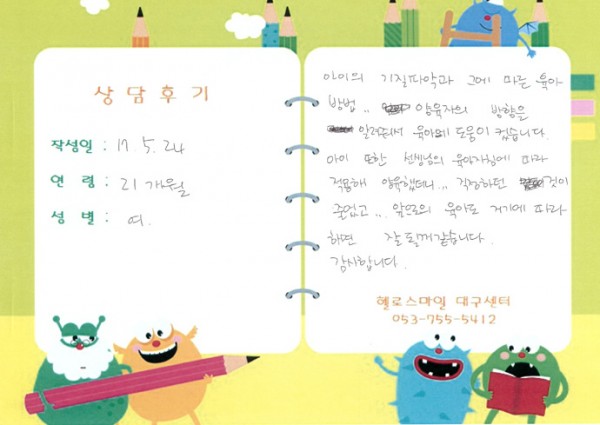 상담후기
작성일 : 17. 5. 24
연 령 : 21 개월
성 별 : 여.
아이의 기질파악과 그에 따른 육아
방법 .. 양육자의 방향을
알려주셔서 육아에 도움이 컸습니다.
아이 또한 선생님의 육아지침에 따라
적용해 양육했더니 .. 걱정하던 것이
줄었고 ... 앞으로의 육아도 거기에 따라
하면 잘 될거 같습니다.
감사합니다.
헬로스마일 대구센터
053-755-5412